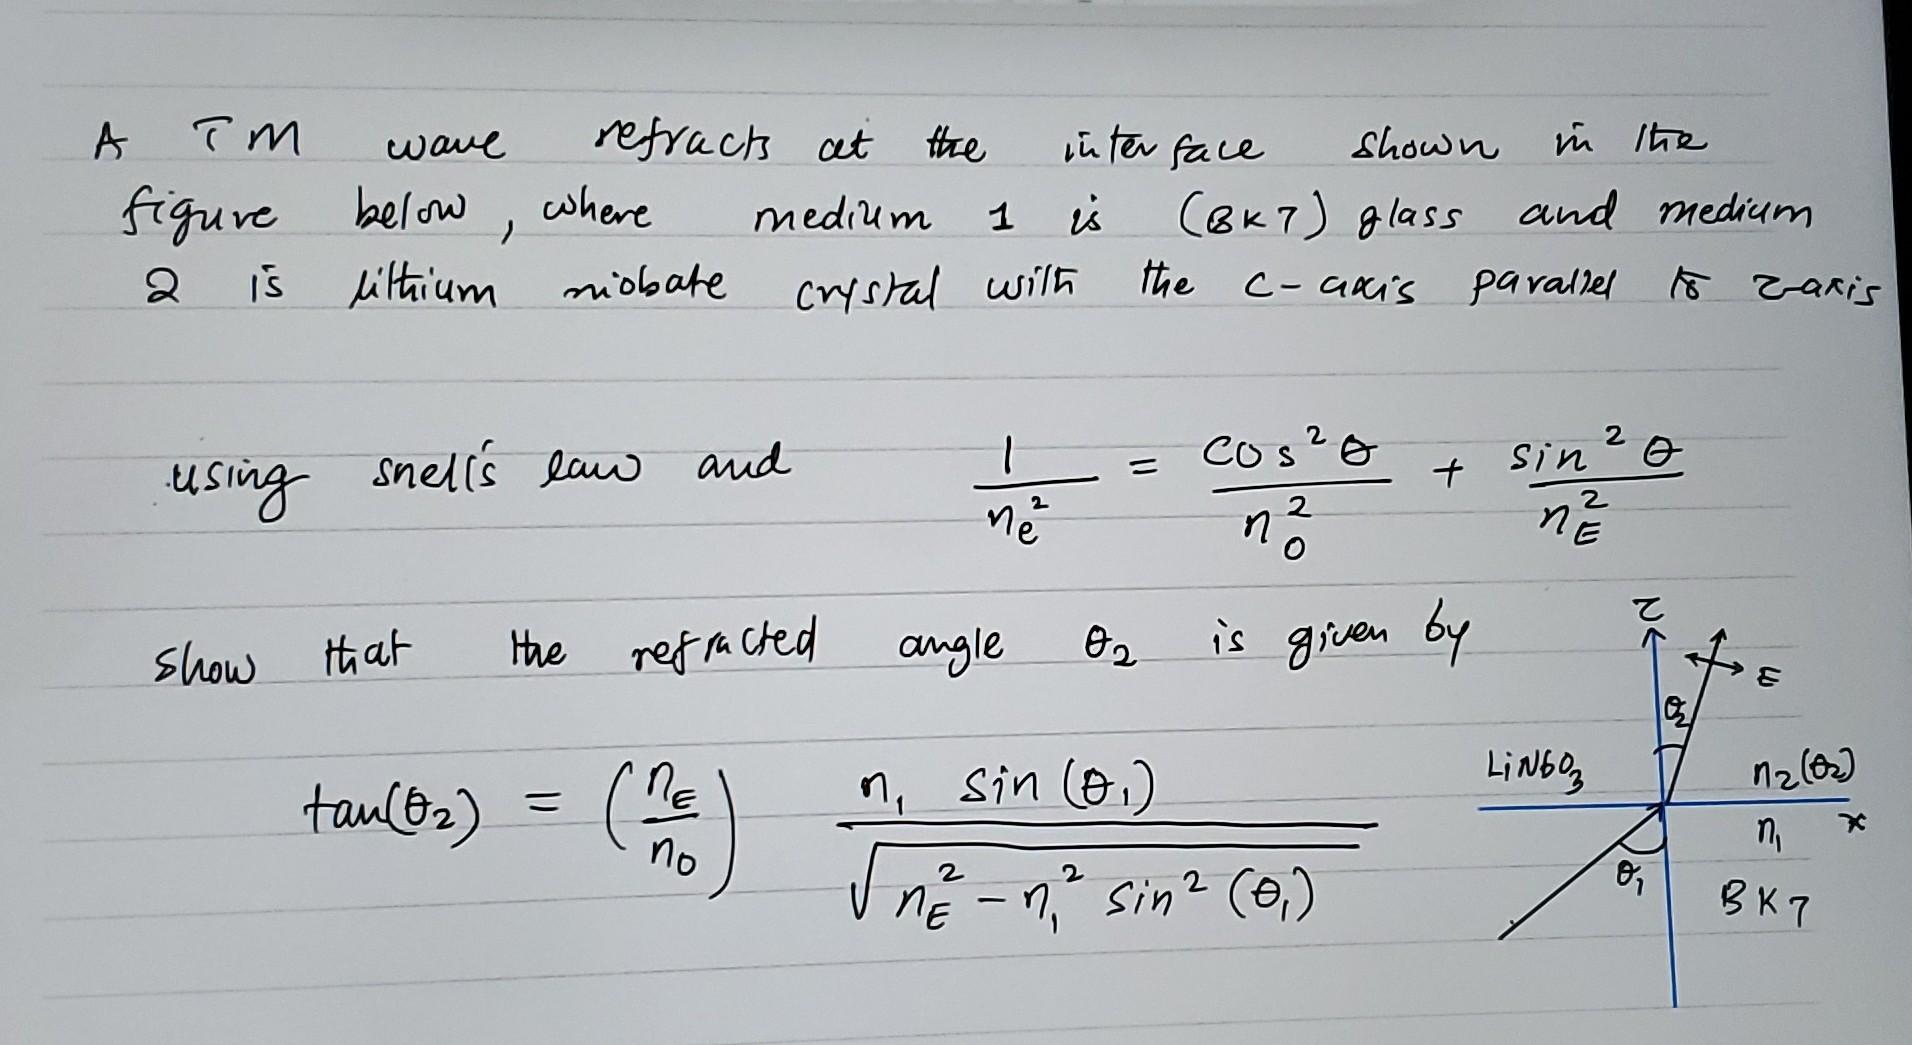 A TM wave refracts at the interface shown in the
figure below, where medium 1 is (BK7) glass and medium
2 is lithium niobate crystal with the c-axis parallel to z-axis
using snell's law and 1/nₑ² = cos²θ/n₀² + sin²θ/n_E²
show that the refracted angle θ₂ is given by
tan(θ₂) = (n_E/n₀) n₁ sin(θ₁)/√(n_E² - n₁² sin²(θ₁))
z
E
θ₂
LiNbO₃ n₂(θ₂)
n₁ x
θ₁
BK7